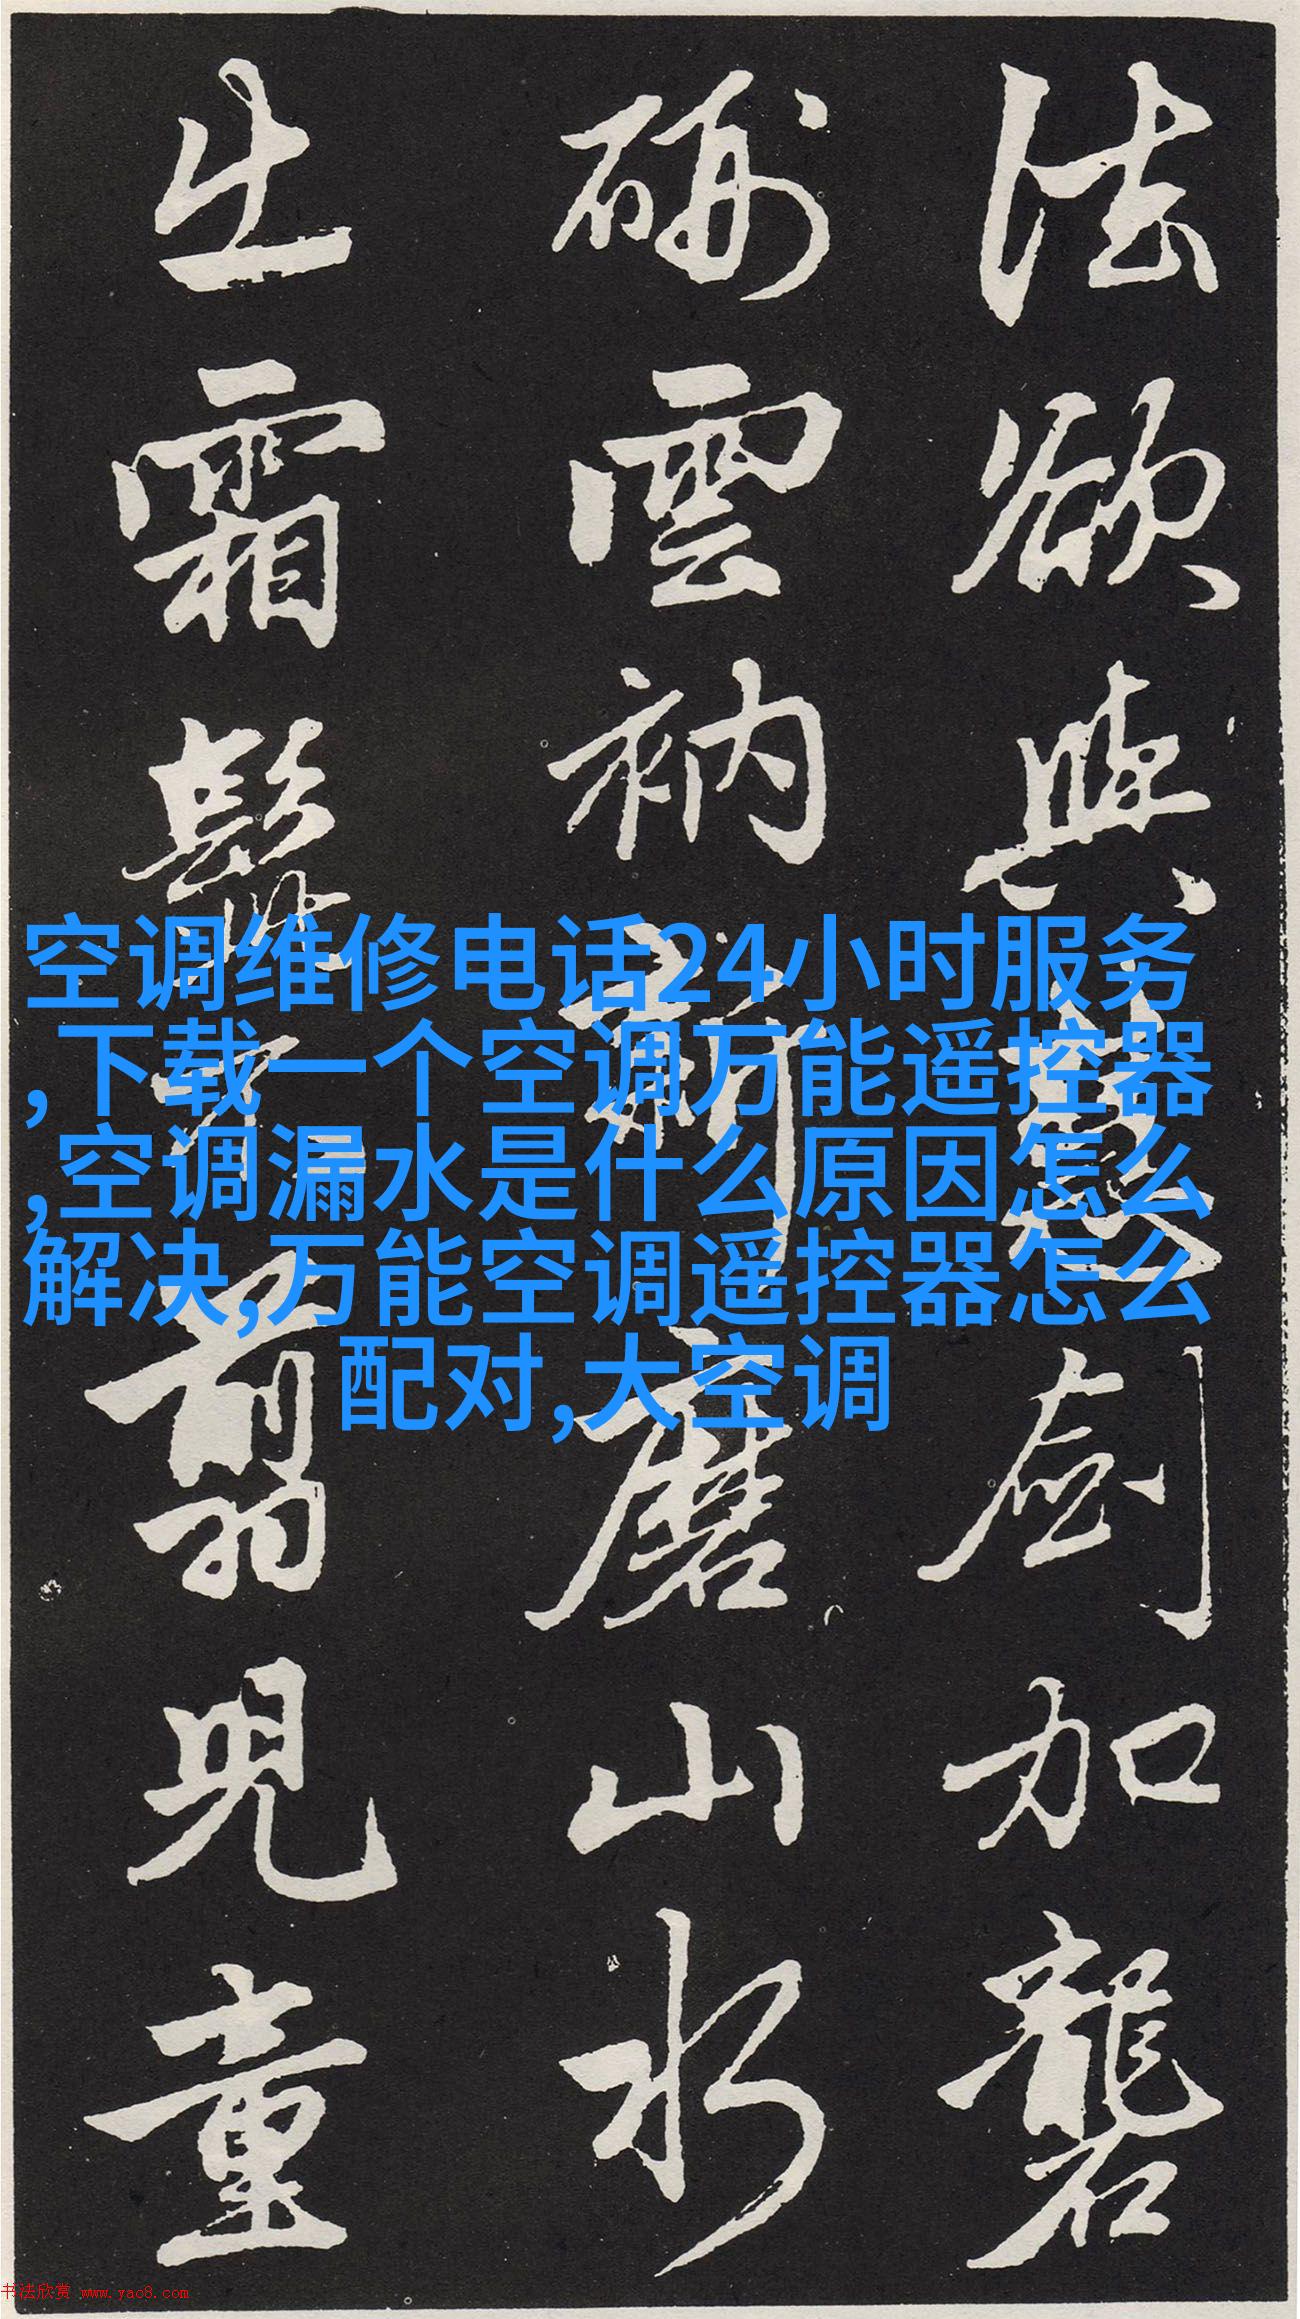 法欲與慧劍加礱
硎雲衲新磨山水
出霜鬚字剪兒童
空调维修电话24小时服务
,下载一个空调万能遥控器
,空调漏水是什么原因怎么
解决,万能空调遥控器怎么
配对,大空调
书法欣赏 www.yac8.com